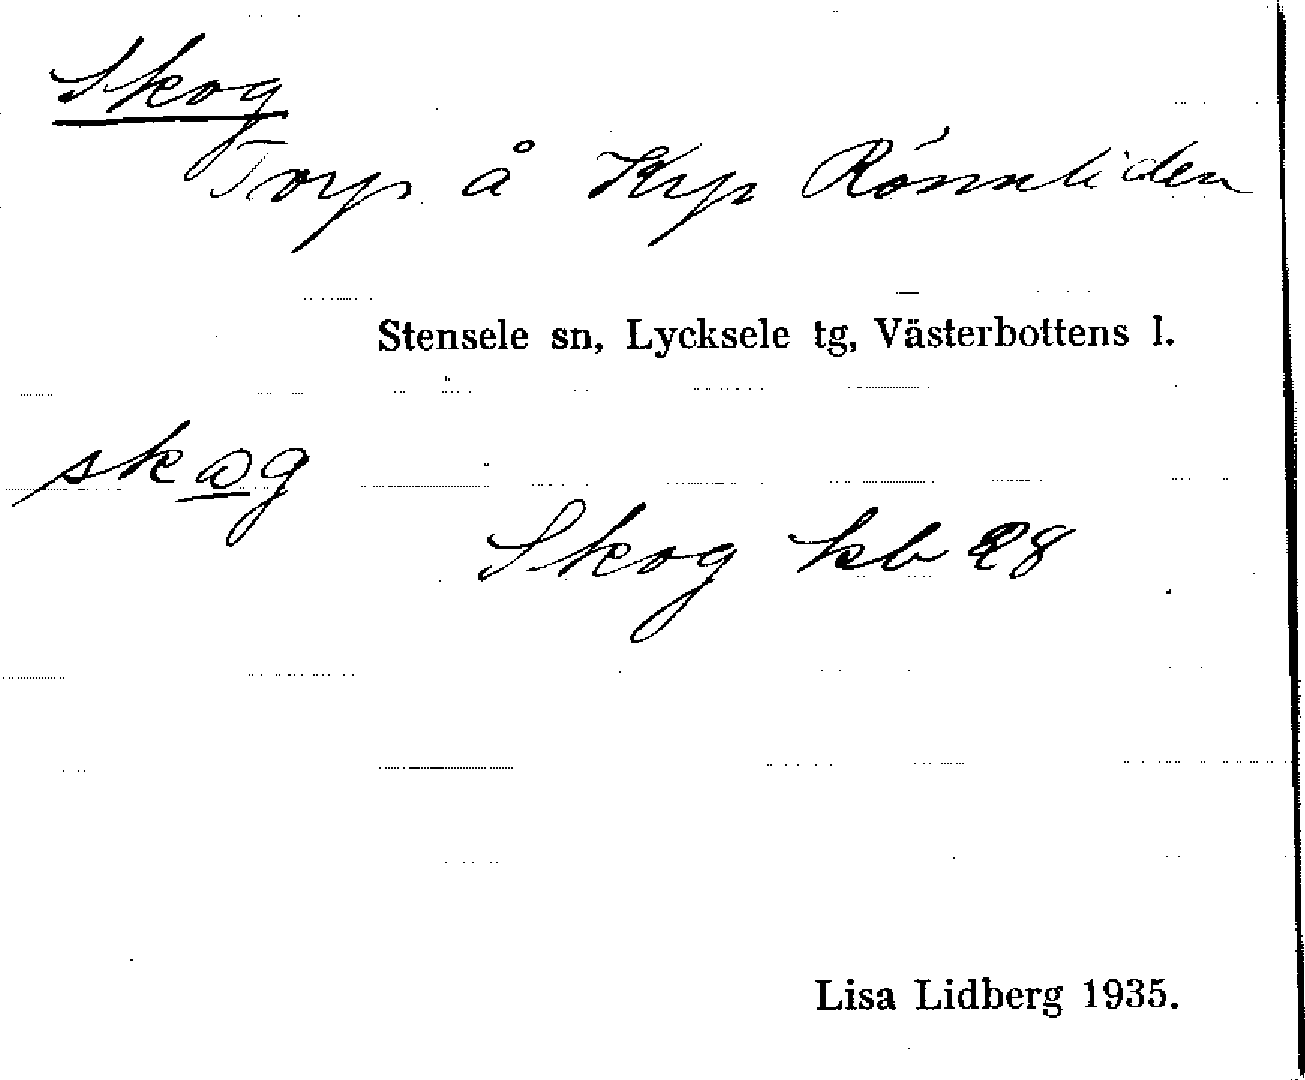 Skog
Torp å Krp Rönnliden
Stensele sn, Lycksele tg, Västerbottens l.
skog
Skog kb 28
Lisa Lidberg 1935.